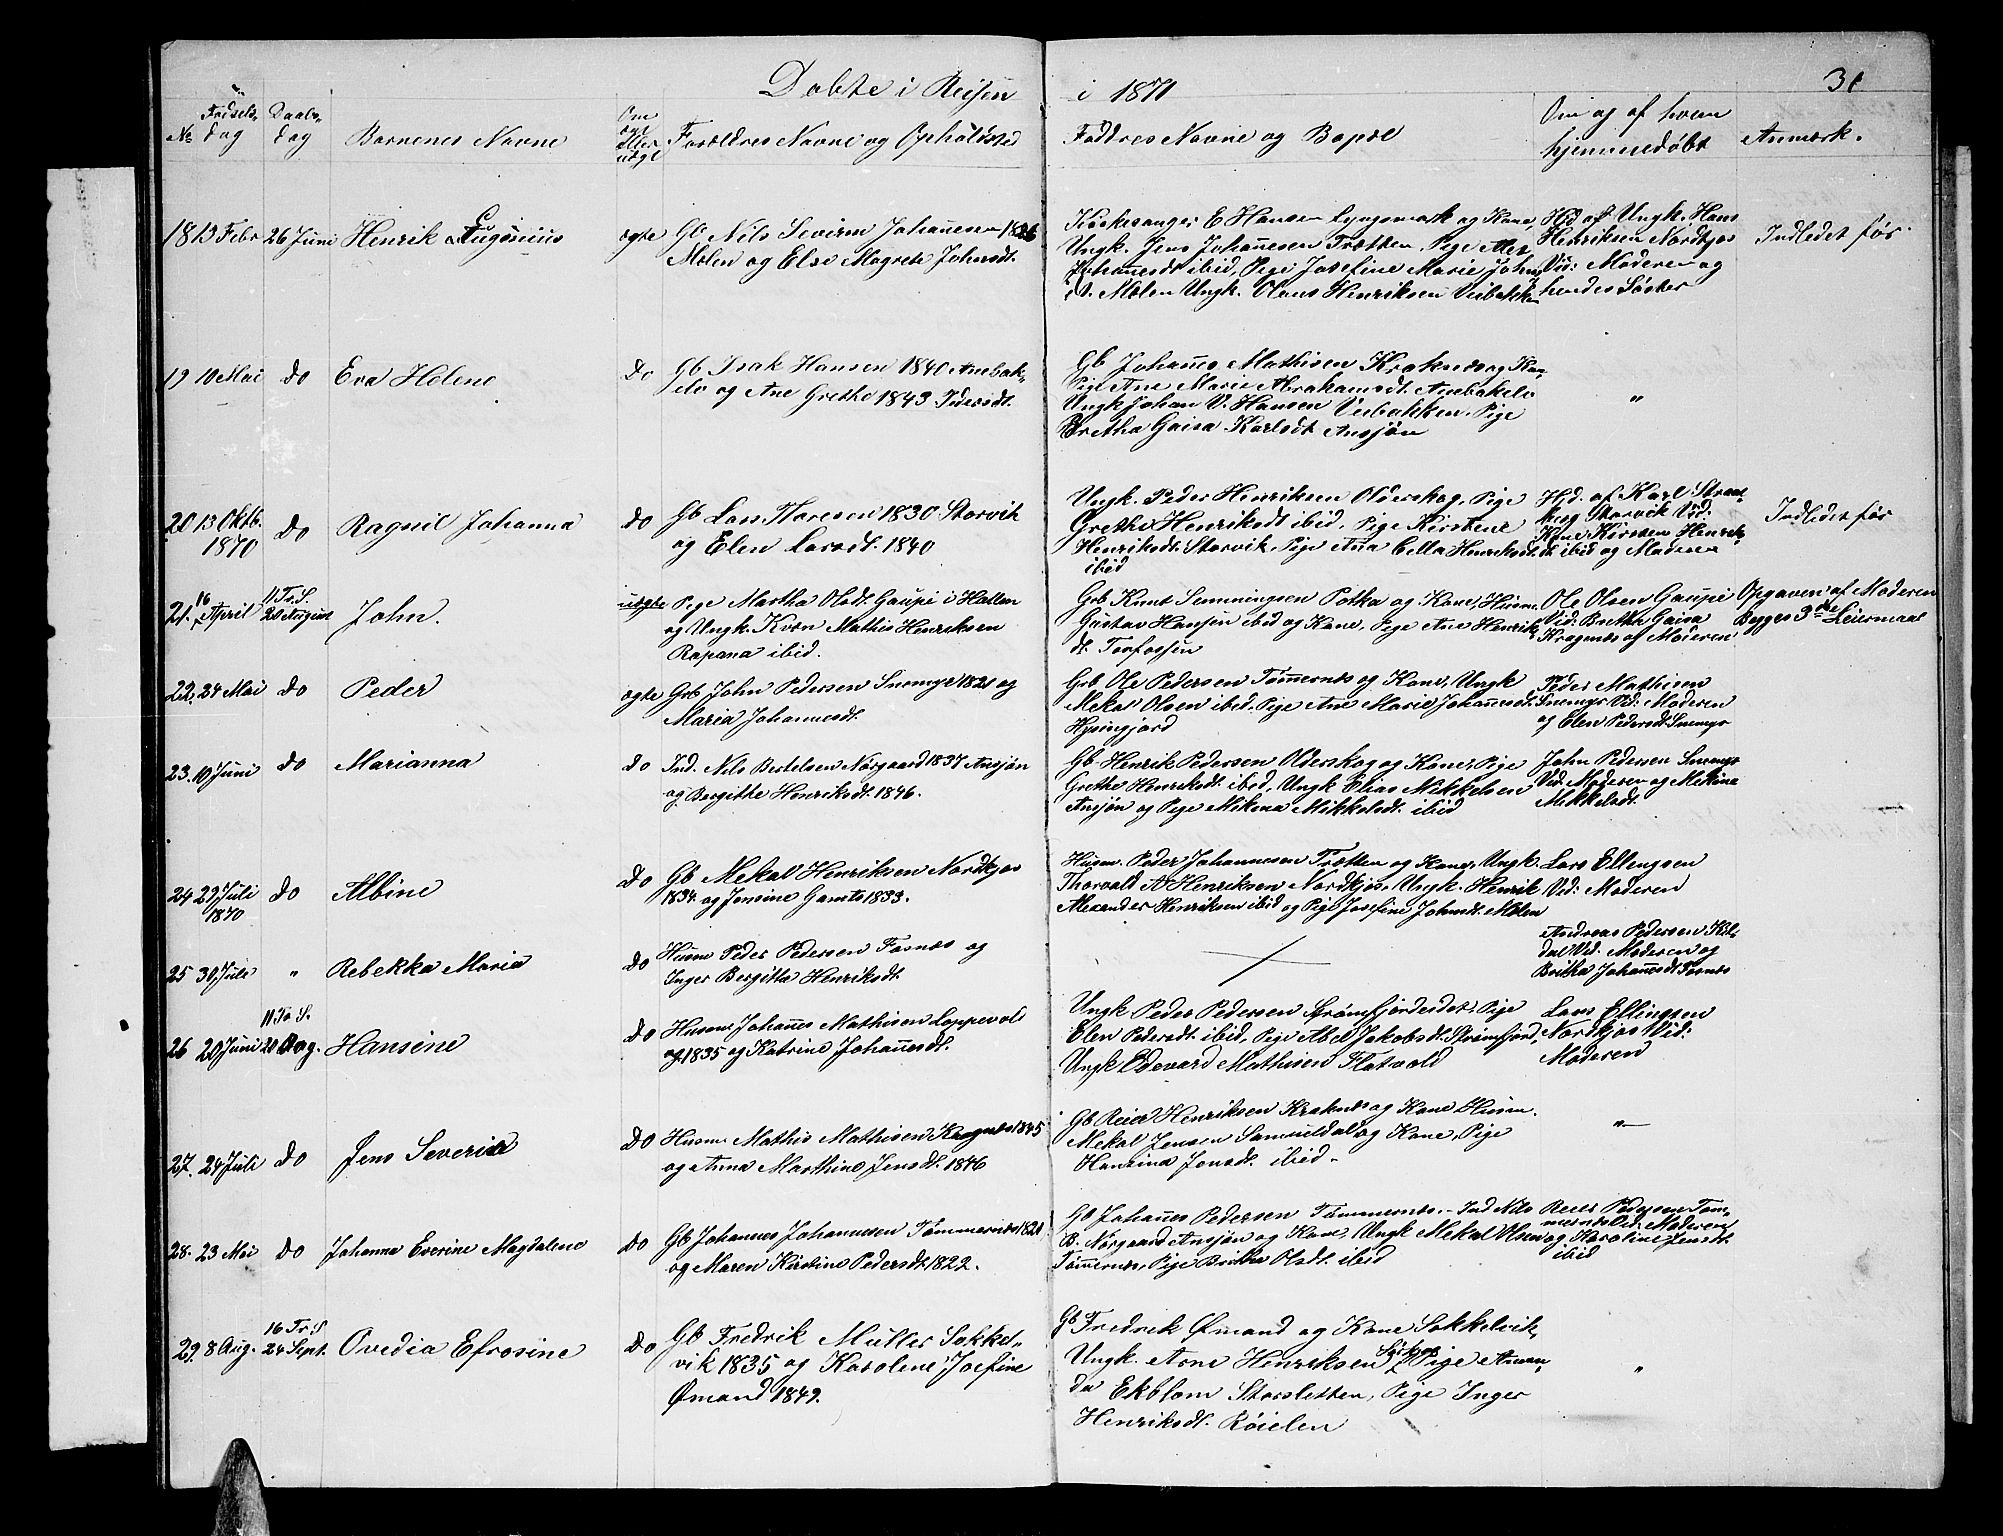 Døbte i Reisen i 1871
31
No Fødsels dag Daabs dag Børnenes Navne Om ægte eller uægte Forældres Navne og Opholdsted Faddres Navne og Bopæl Om og af hvem hjemmedøbt Anmærk.
18 13 Febr 26 Juni Henrik Eugenius ægte Gb Nils Severin Johannesen 1826
Molen og Else Magrete Johnsdt.
Kirkesanger E Hansen Lyngsmark og Kone,
Ungk. Jens Johannesen Trætten, Pige
Johannesdt ibid, Pige Josefine Marie John
dt. Molen Ungk. Olaus Henriksen Veibakken
Hjd af Ungk. Hans
Henriksen Nordkjos
Vid: Moderen og
hendes Søster
Indledet før.
19 10 Mai do Eva Helene do Gb Isak Hansen 1840 Anebak-
elv og Ane Grethe 1843 Pedersdt.
Gb Johannes Mathisen Kraknes og Kone,
Pige Ane Marie Abrahamsdt. Anebakelv
Ungk Johan V. Hansen Veibakken, Pige
Bretha Gaisa Karlsdt Ansjøn
"
20 13 Oktb. 1870 do Ragnil Johanna do Gb Lars Thoresen 1830 Storvik
og Elen Larsdt. 1840
Ungk. Peder Henriksen Olderskog, Pige
Grethe Henriksdt ibid, Pige Kirstene
Henriksdt. Storvik, Pige Ana Cella Henriksdt
ibid
Hjd. af Karl Straat
berg Storvik Vid.
Kone Kirsten Henrik-
dt ibid og Moderen
Indledet før
21. 16 April 11 Tr. S. 20 August John. uægte Pige Martha Olsdt. Gaupi i Hallen
og Ungk. Kvæn Mathis Henriksen
Rapana ibid.
Grb Knut Semmingsen Potka og Kone, Husm.
Gustav Hansen ibid og Kone, Pige Ane Henrik
dt. Torfossen
Ole Olsen Gaupi
Vid: Bretha Gaisa
Kragnes og Moderen
Opgaven af Moderen
Begges 3die Leiermaal
22. 24 Mai do Peder ægte Grb John Pedersen Snemyr 1821 og
Maria Johannesdt.
Grb Ole Pedersen Tømmernes og Kone, Ungk
Mekal Olsen ibid, Pige Ane Marie Johannesdt.
Hysingjord
Peder Mathisen
Snemyr Vid: Moderen
og Elen Pedersdt. Snemyr
23. 10 Juni do Marianna do Ind. Nils Bertelsen Nørgaard 1837 Ansjøn
og Bergitthe Henriksdt. 1846.
Gb Henrik Pedersen Olderskog og Kone, Pige
Grethe Henriksdt. ibid, Ungk Elias Mikkelsen
Ansjøn og Pige Mikena Mikkelsdt. ibid
John Pedersen Snemyr
Vid. Moderen og Mekina
Mekkelsdt.
24 29 Juli 1870 do Albine do Gb Mekal Henriksen Nordkjos
1834. og Jonsine Gamts 1833.
Husm. Peder Johannesen Trætten og Kone, Ungk.
Thorvald A Henriksen Nordkjos, Ungk. Henrik
Alexander Henriksen ibid og Pige Josefine Johnsdt. Molen
Lars Ellengsen
Vid: Moderen
25 30 Juli " Rebekka Maria do Husm Peder Pedersen Fosnæs og
Inger Bergitta Henriksdt.
Andreas Pedersen Kil-
dal Vid: Moderen og
Britha Johannesdt. Fosnæs
26 20 Juni 11 Tr. S. 20 Aug. Hansine do Husm. Johannes Mathisen Loppevold
1835 og Katrine Johannesdt.
Ungk Peder Pedersen Strømfjordeidet, Pige
Elen Pedersdt. ibid, Pige Abel Jakobsdt. Strømfjord,
Ungk Edevard Mathisen Flatvold
Lars Ellingsen
Nordkjos Vid:
Moderen
27. 24 Juli do Jens Severin do Husm. Mathis Mathisen Kragnæs 1845
og Anna Marthine Jensdt. 1846
Gb Reier Henriksen Kraknes og Kone, Husm.
Mekal Jensen Samueldal og Kone, Pige
Hansina Jensdt. ibid.
"
28. 23 Mai do Johanna Everine Magdalene do Gb Johannes Johannesen Tømmernes 1821
og Maren Kirstine Pedersdt. 1822.
Gb Johannes Pedersen Tømmernes, Ind Nils
B. Nørgaard Ansjøn og Kone, Ungk Mekal Olsen
Tømmernes, Pige Britha Olsdt. ibid
Reier Pedersen Tøm-
mernes Vid: Moderen
og Karoline Jensdt.
ibid
29. 8 Aug. 16 Tr. S 24 Sept. Ovedia Efrosine do Gb Fredrik Müller Sokkel-
vik 1835 og Karolene Josefine
Ømand 1849.
Gb Fredrik Ømand og Kone Sokkelvik,
Ungk. Arne Henriksen Sørkjos Pige Aman-
da Ekblom Storsletten, Pige Inger
Henriksdt. Røielen
"